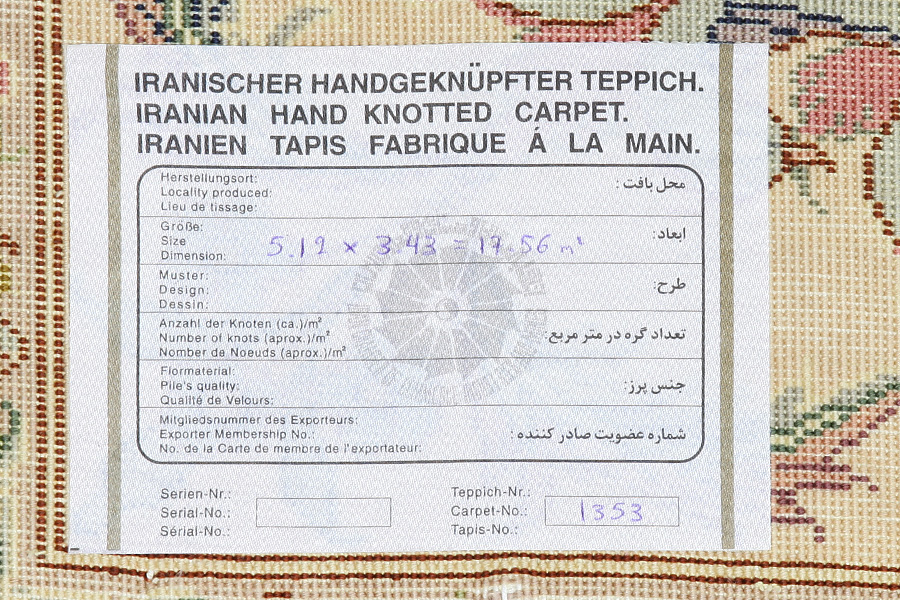 IRANISCHER HANDGEKNÜPFTER TEPPICH.
IRANIAN HAND KNOTTED CARPET.
IRANIEN TAPIS FABRIQUE Á LA MAIN.
Herstellungsort:
محل بافت :
Locality produced:
Lieu de tissage:
Größe:
ابعاد:
Size
5.12 x 3.43 = 17.56 m²
Dimension:
Muster:
Design:
طرح:
Dessin:
Anzahl der Knoten (ca.)/m²
Number of knots (aprox.)/m²
تعداد گره در متر مربع:
Nomber de Noeuds (aprox.)/m²
Flormaterial:
Pile's quality:
جنس پرز:
Qualité de Velours:
Mitgliedsnummer des Exporteurs:
Exporter Membership No.:
شماره عضویت صادر کننده :
No. de la Carte de membre de l'exportateur:
Serien-Nr.:
Serial-No.:
Sérial-No.:
Teppich-Nr.:
Carpet-No.: 1353
Tapis-No.: